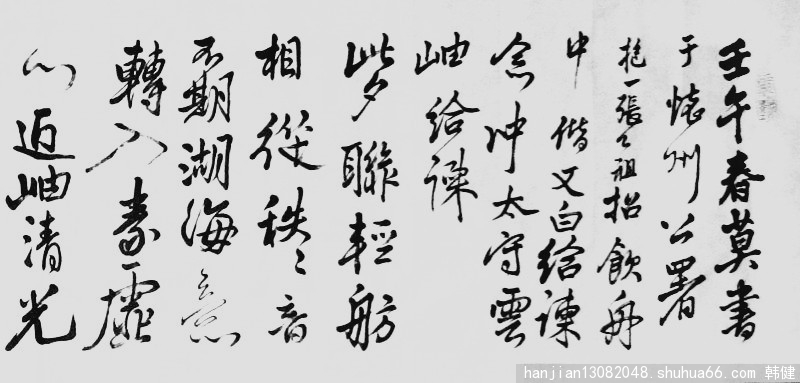 壬午春莫書
于懷州公署
抱一張公祖招飲舟
中偕丈白給諫
念沖太守雲
岫給諫
此夕聯輕舫
相從秩〻音
不期湖海意
轉入素虛
心迥岫清光
hanjian13082048.shuhua66.com 韩健